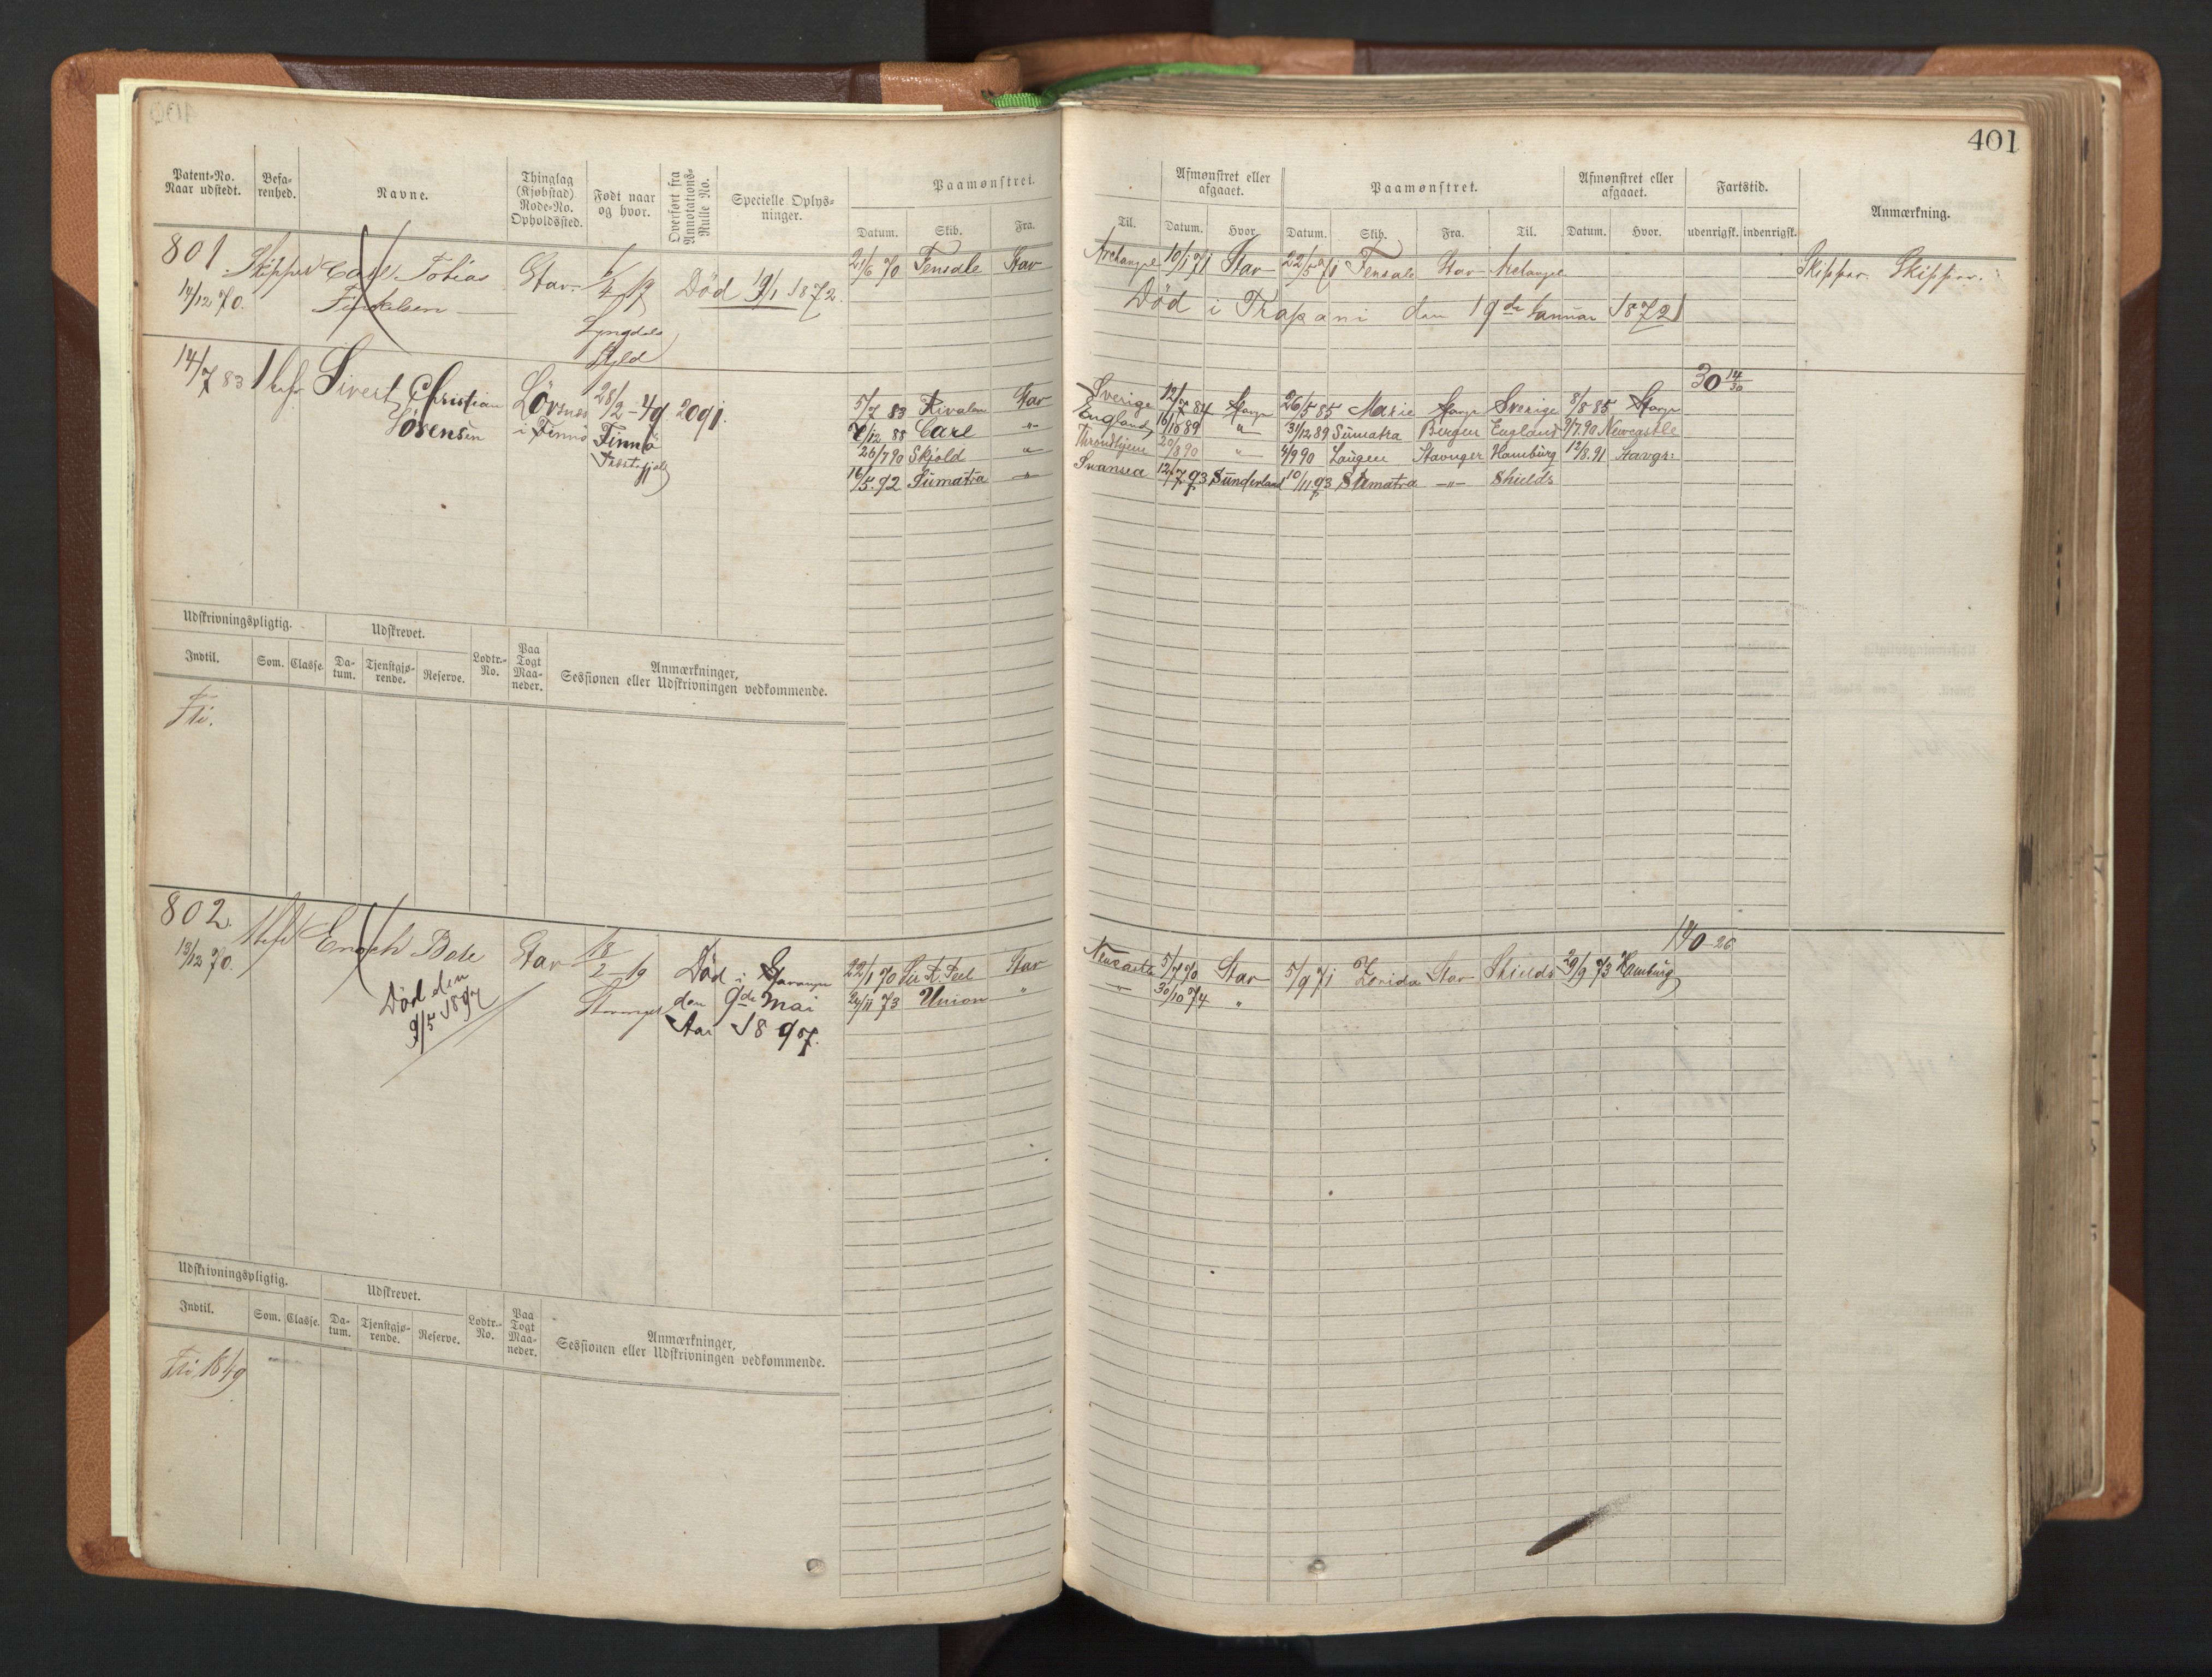 401
Patent-No. Naar udstedt. Befa-renhed. Navne. Thinglag (Kjøbstad) Rode-No. Opholdssted. Født naar og hvor. Overført fra Annotations-Rulle No. Specielle Oplys-ninger. Paamønstret.
Datum. Skib. Fra.
801 Skipper Carl Tobias Stav. Død 19/1 1872. 21/6 70 Fensale Stav
14/12 70.
Lyngdal
14/7 83 Sivert Christian 28/2-49. 2091. 5/7 83 Rivalen Stav
Sörensen i Finnö Finnö 7/12 88 Carl -"-
26/7 90 Skjold "
16/5. 92 Sumatra -"-
Udskrivningspligtig. Udskrevet. Lodtr.-No. Paa Togt Maa-neder. Anmærkninger, Sessionen eller Udskrivningen vedkommende.
Indtil. Som. Classe. Da-tum. Tjenstgjø-rende. Reserve.
Fri.
802. Enoch Stav 18/2-19 Død i Stavanger 22/1 70 Stav
13/12 70. Død den Stavanger den 9de Mai 24/11 73 Union "
9/5 1897 Aar 1897.
Udskrivningspligtig. Udskrevet. Lodtr.-No. Paa Togt Maa-neder. Anmærkninger, Sessionen eller Udskrivningen vedkommende.
Indtil. Som. Classe. Da-tum. Tjenstgjø-rende. Reserve.
Fri 1849
Afmønstret eller afgaaet. Paamønstret. Afmønstret eller afgaaet. Fartstid. Anmærkning.
Til. Datum. Hvor. Datum. Skib. Fra. Til. Datum. Hvor. udenrigsk. indenrigsk.
Archangel 10/1 71 Stav 22/5 71 Fensale Stav Archangel Skipper. Skipper.
Død i Trapani den 19de Januar 1872
30 14/30
Sverige 12/7 84 Stavgr 26/5 85 Marie Stavgr Sverige 8/8 85 Stavgr
England 16/1 89 " 31/12 89 Sumatra Bergen England 9/7.90 Newcastle
Throndhjem 20/8 90 " 4/9 90 Laugen Stavnger Hamburg 12/8.91 Stavgr:
Swansea 12/7.93 Sunderland 10/11 93 Sumatra -"- Shields
140-26
Newcastle 5/7 70 Stav 5/9 71 Zorida Stav Shields 29/9 73 Hamburg
-"- 30/10 74 "